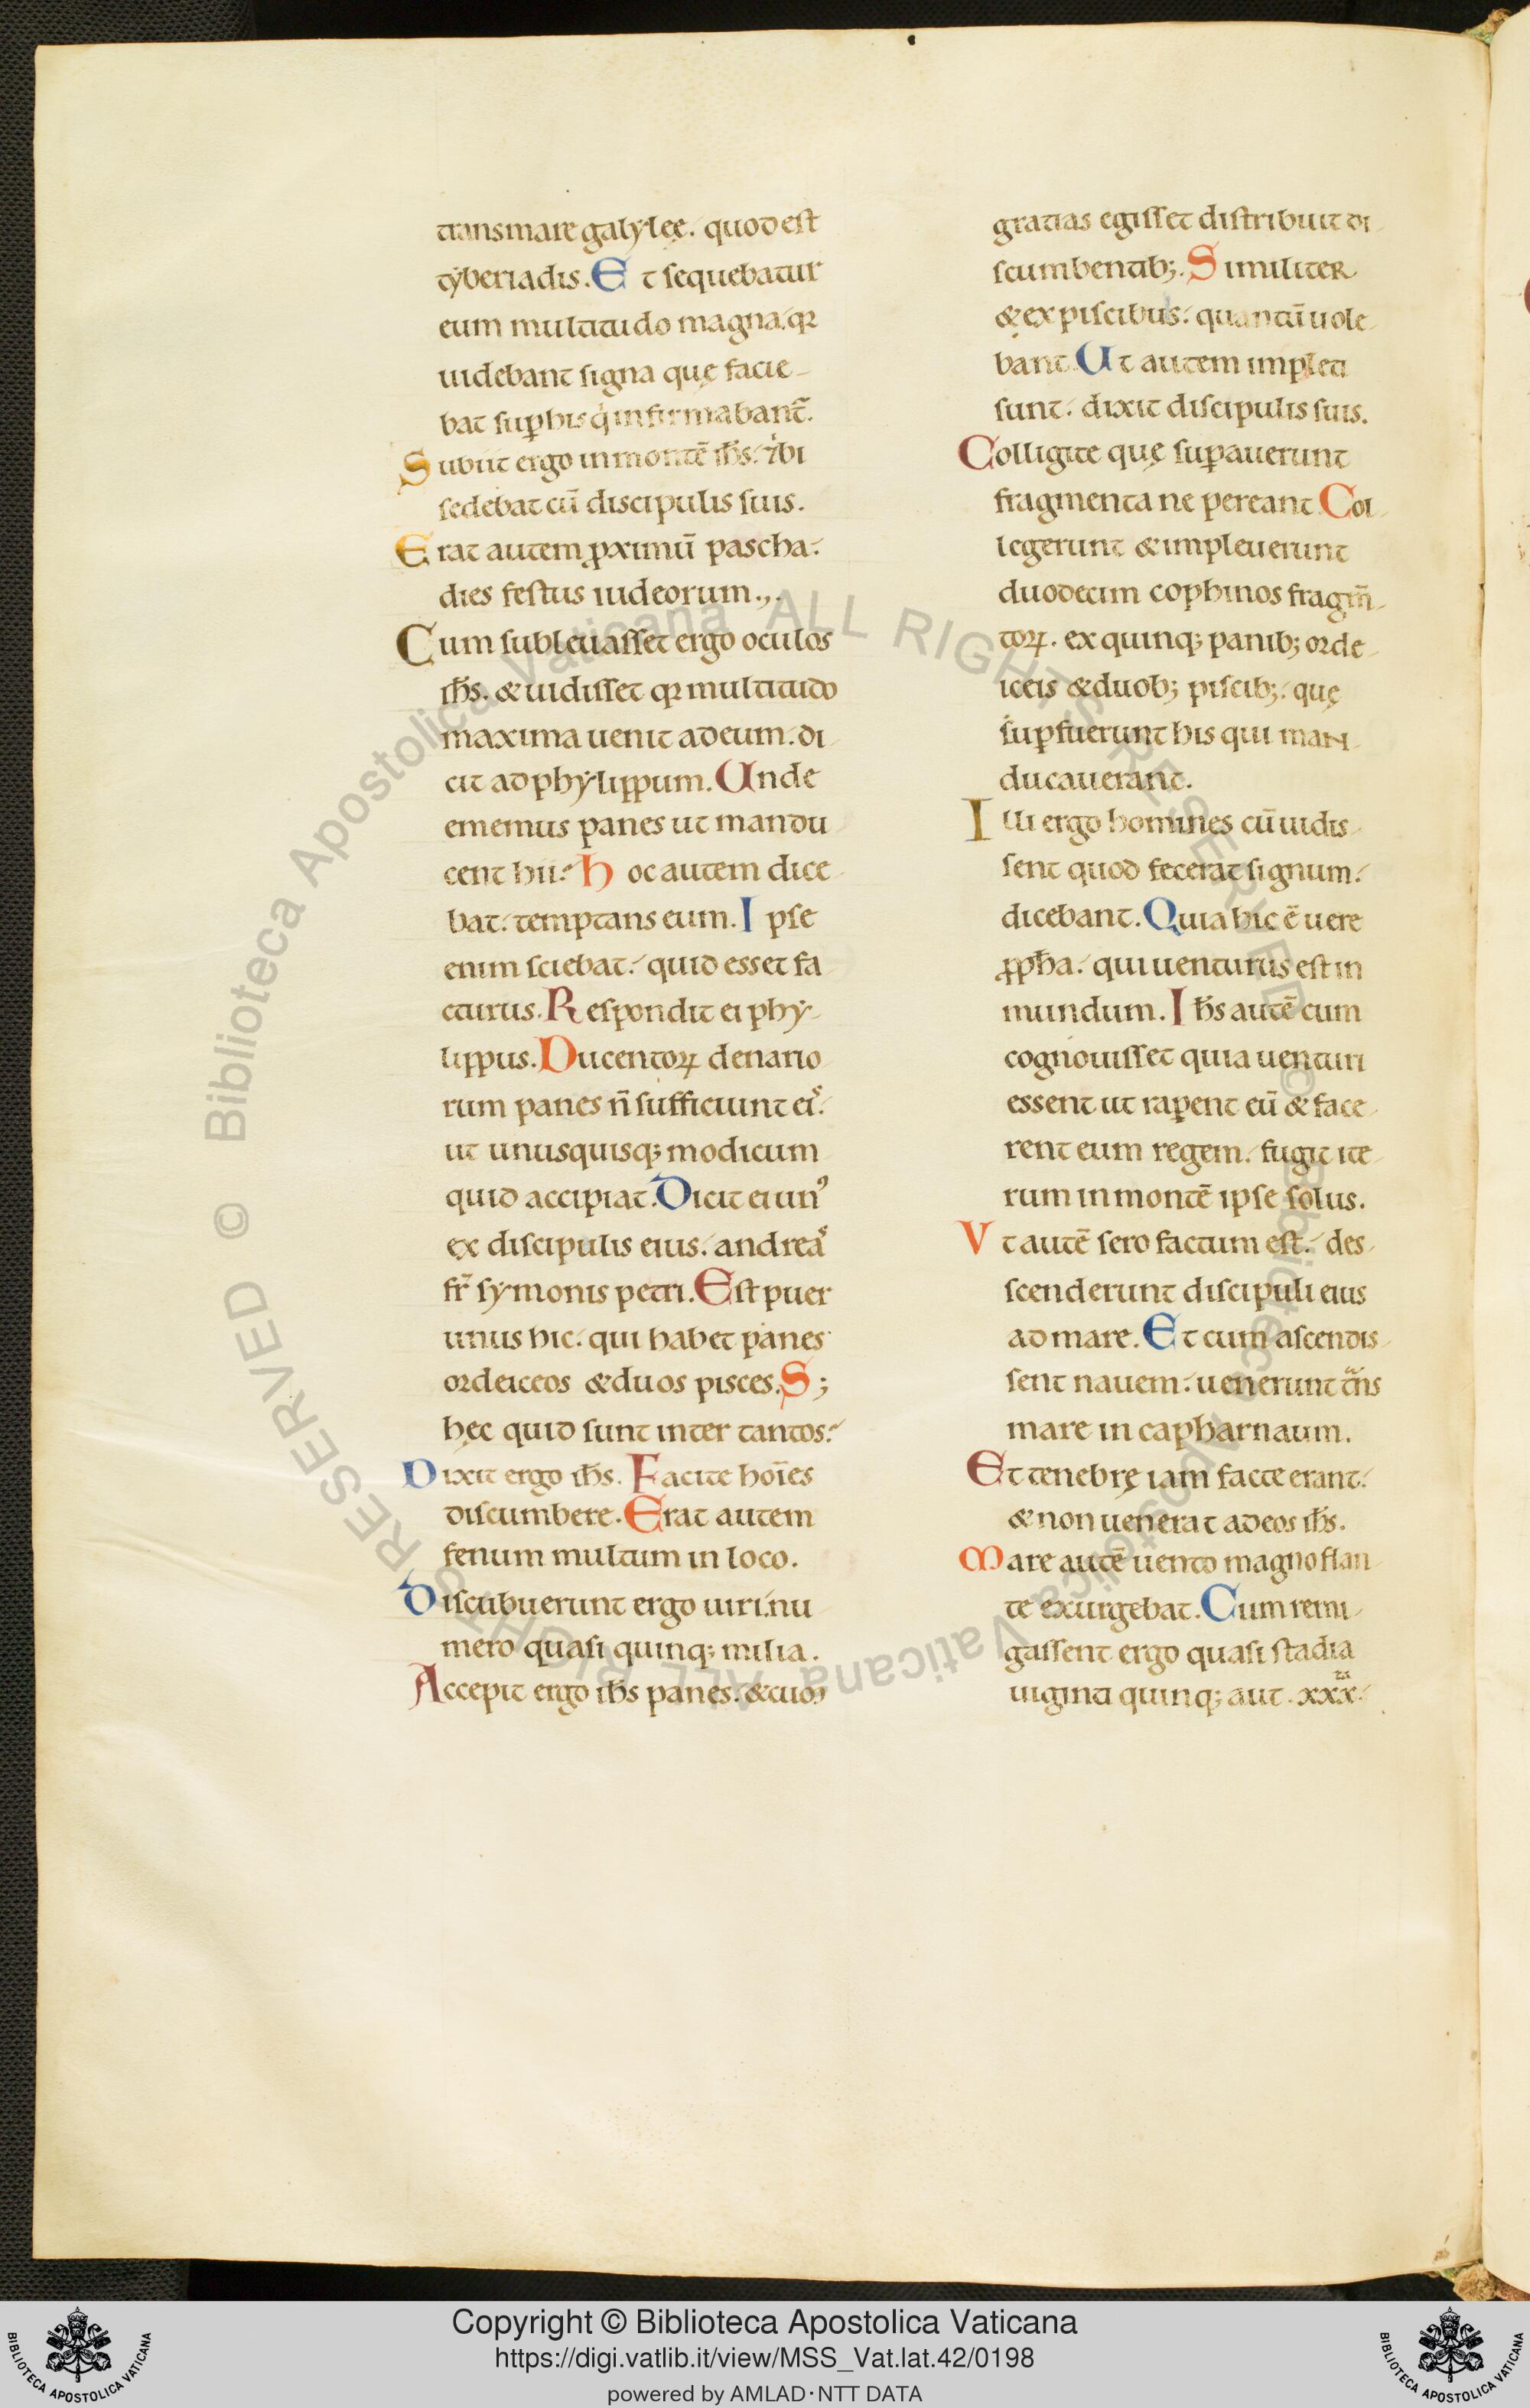 transmare galylęe. quod est
tyberiadis. Et sequebatur
eum multitudo magna. qꝛ
uidebant signa quę facie-
bat suꝑ his q̇ infirmabant̃.
Subiit ergo in montē ih̅s. ⁊ ibi
sedebat cū discipulis suis.
Erat autem ꝓximū pascha.
dies festus iudeorum.,.
Cum subleuasset ergo oculos
ih̅s. & uidisset qꝛ multitudo
maxima uenit ad eum. di-
cit ad phylippum. Unde
ememus panes ut mandu-
cent hii? Hoc autem dice-
bat. temptans eum. Ipse
enim sciebat. quid esset fa-
cturus. Respondit ei phy-
lippus. Ducentoꝝ denario-
rum panes n̄ sufficiunt eis.
ut unusquisq; modicum
quid accipiat. Dicit ei unꝰ
ex discipulis eius. andreas
fr̄ symonis petri. Est puer
unus hic. qui habet panes
ordeiceos & duos pisces. S;
hęc quid sunt inter tantos?
Dixit ergo ih̅s. Facite hoīes
discumbere. Erat autem
fenum multum in loco.
Discubuerunt ergo uiri. nu-
mero quasi quinq; milia.
Accepit ergo ih̅s panes. & cū
gratias egisset distribuit di-
scumbentib;. Similiter
& ex piscibus. quantū uole-
bant. Ut autem impleti
sunt. dixit discipulis suis.
Colligite quę suꝑauerunt
fragmenta ne pereant. Col-
legerunt & impleuerunt
duodecim cophinos fragm̄-
toꝝ. ex quinq; panib; orde-
iceis & duob; piscib;. quę
suꝑfuerunt his qui man-
ducauerant.
Illi ergo homines cū uidis-
sent quod fecerat signum.
dicebant. Quia hic ē uere
ꝓph̅a. qui uenturus est in
mundum. Ih̅s autē cum
cognouisset quia uenturi
essent ut raꝑent eū & face-
rent eum regem. fugit ite-
rum in montē ipse solus.
Vt autē sero factum est. des-
scenderunt discipuli eius
ad mare. Et cum ascendis-
sent nauem. uenerunt t̄ns
mare in capharnaum.
Et tenebrę iam facte erant.
& non uenerat ad eos ih̅s.
Mare autē uento magno flan-
te exurgebat. Cum remi-
gassent ergo quasi stadia
uiginti quinq; aut. xxx.
Copyright © Biblioteca Apostolica Vaticana
https://digi.vatlib.it/view/MSS_Vat.lat.42/0198
powered by AMLAD·NTT DATA